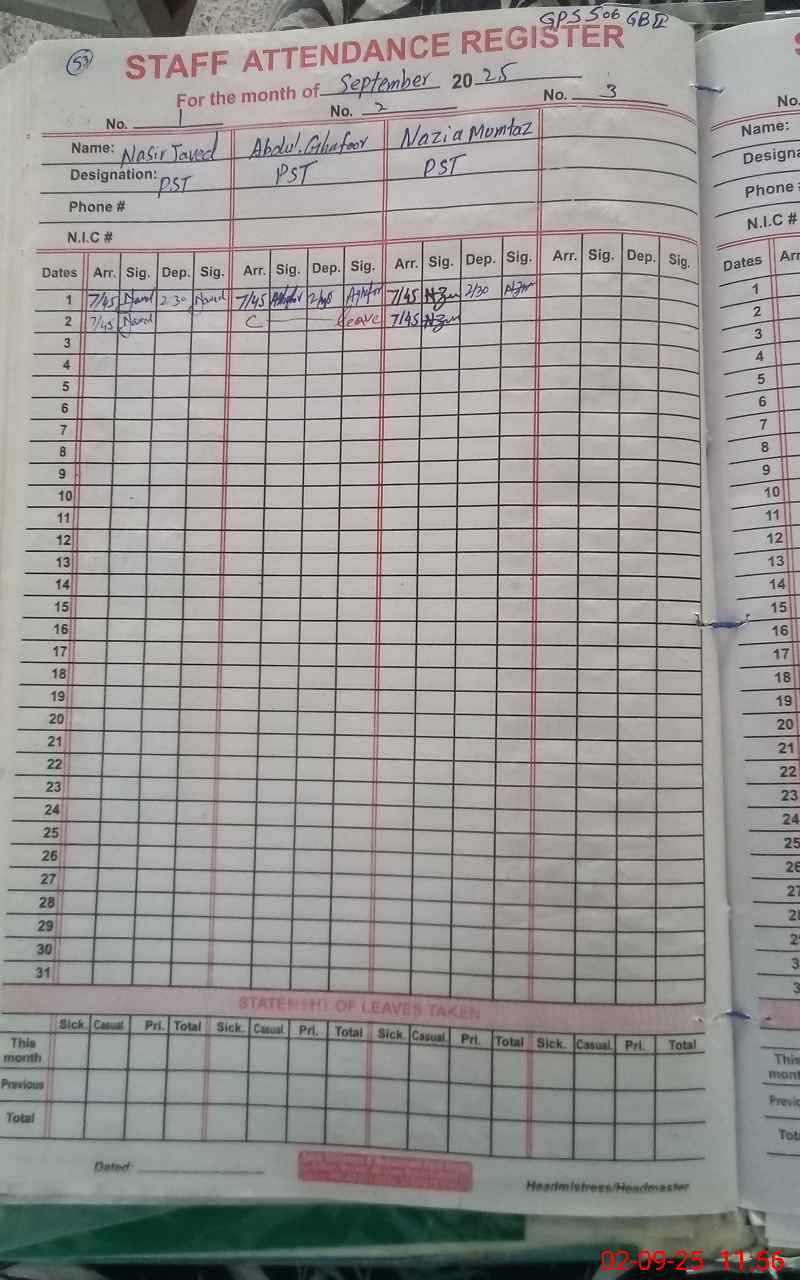 GPS 506 GB II
53
STAFF ATTENDANCE REGISTER
For the month of September 2025
No. 1 No. 2 No. 3
Name: Nasir Javed Abdul. Ghafoor Nazia Momtaz
Designation: PST PST PST
Phone #
N.I.C #
Dates Arr. Sig. Dep. Sig. Arr. Sig. Dep. Sig. Arr. Sig. Dep. Sig. Arr. Sig. Dep. Sig.
1 7/45 2:30 7/45 7/45 2/30
2 7/45 C leave 7/45
3
4
5
6
7
8
9
10
11
12
13
14
15
16
17
18
19
20
21
22
23
24
25
26
27
28
29
30
31
STATEMENT OF LEAVES TAKEN
Sick. Casual. Pri. Total Sick. Casual. Pri. Total Sick. Casual. Pri. Total Sick. Casual. Pri. Total
This month
Previous
Total
Dated:
Headmistress/Headmaster
No.
Name:
Designa
Phone
N.I.C #
Dates Arr
1
2
3
4
5
6
7
8
9
10
11
12
13
14
15
16
17
18
19
20
21
22
23
24
25
26
27
This
mont
Previo
Tot
02-09-25 11:56